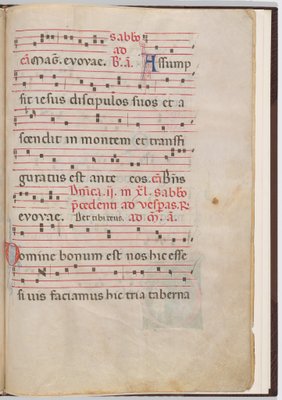 sabbo
ad
cã Mag̃. evovae. B'. ã. Assump
sit iesus discipulos suos et a
scendit in montem et transfi
guratus est ante eos. cã Bñs
Dñica. ij. in xl. sabbo
p̃cedenti ad vesp̃as. R
evovae. ad m̃. ã.
Domine bonum est nos hic esse
si vis faciamus hic tria taberna